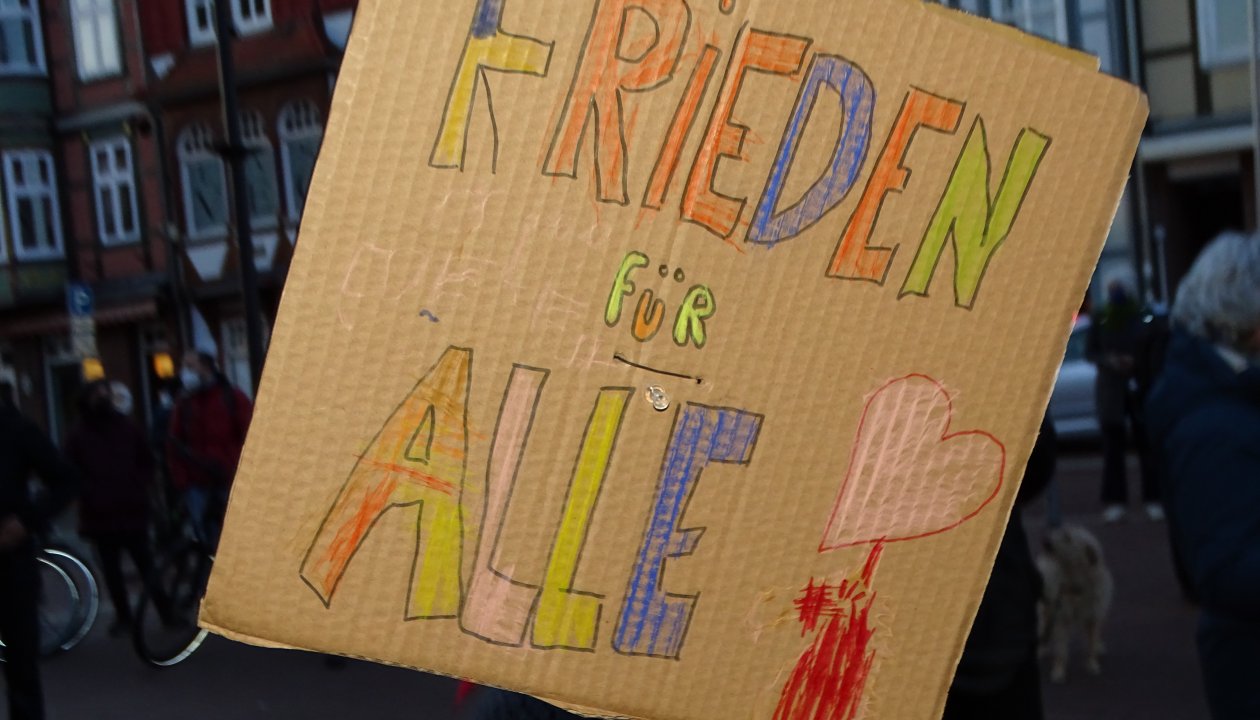 FRiEDEN
FÜR
ALLE